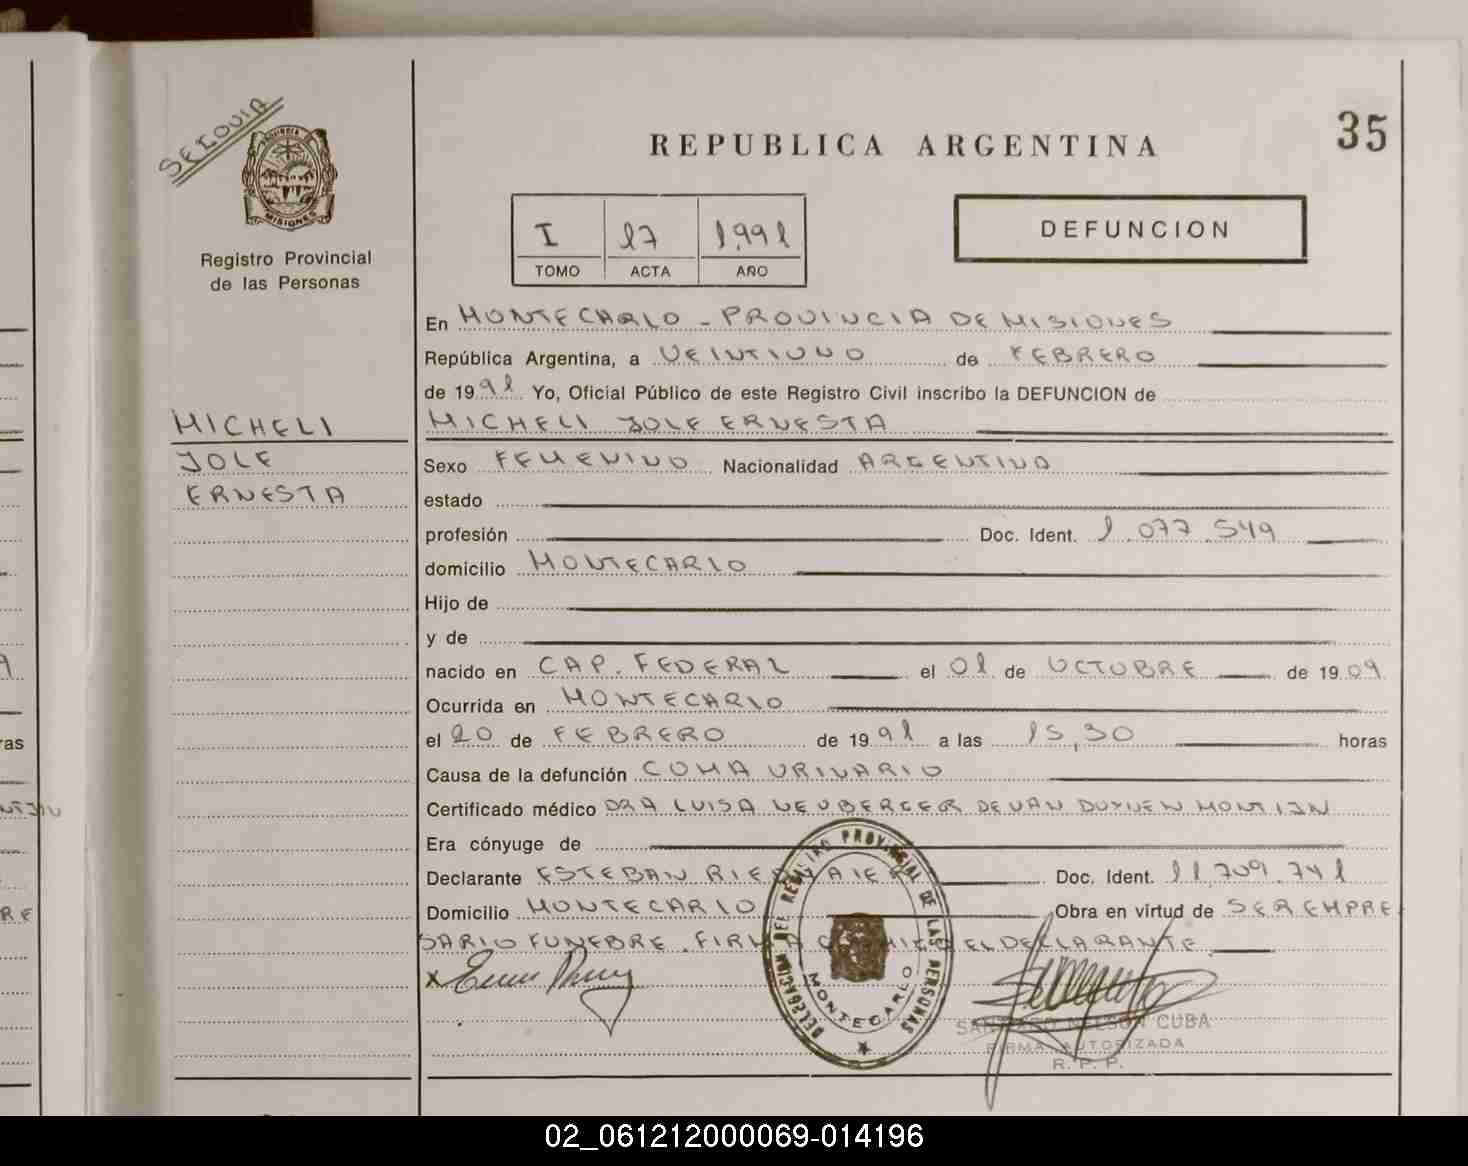 SEGOVIA
PROVINCIA DE
MISIONES
Registro Provincial
de las Personas
REPUBLICA ARGENTINA
35
I 17 1991
TOMO ACTA AÑO
DEFUNCION
En MONTECARLO - PROVINCIA DE MISIONES
República Argentina, a VEINTIUNO de FEBRERO
de 1991 Yo, Oficial Público de este Registro Civil inscribo la DEFUNCION de
MICHELI
MICHELI JOLE ERNESTA
JOLE
Sexo FEMENINO Nacionalidad ARGENTINA
ERNESTA
estado
profesión Doc. Ident. 1.077.549
domicilio MONTECARLO
Hijo de
y de
nacido en CAP. FEDERAL el 01 de OCTUBRE de 1909
Ocurrida en MONTECARLO
el 20 de FEBRERO de 1991 a las 15,30 horas
Causa de la defunción COMA URINARIO
Certificado médico DRA LUISA NEUBERGER DE VAN DUYNEN MONTIJN
Era cónyuge de
Declarante ESTEBAN Doc. Ident. 11.709.741
Domicilio MONTECARLO Obra en virtud de SER EMPRE
SARIO FUNEBRE. FIRMA CONMIGO EL DECLARANTE
X
DELEGACION DEL REGISTRO PROVINCIAL DE LAS PERSONAS
MONTECARLO
SANTIAGO NELSON CUBA
FIRMA AUTORIZADA
R. P. P.
ras
RE
02_061212000069-014196